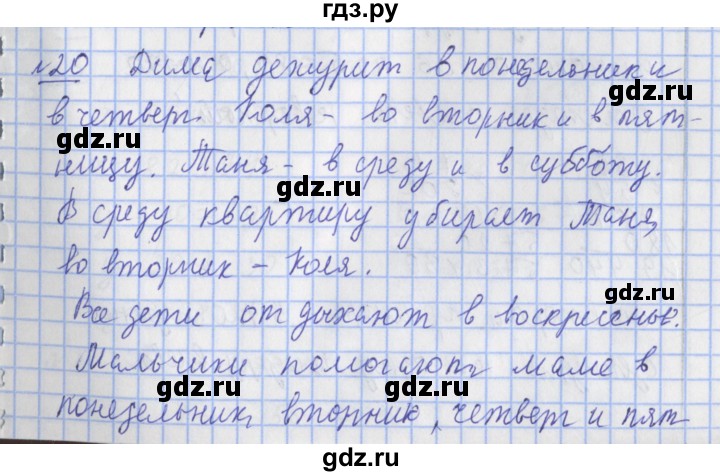 гдз.ру
№20 Дима дежурит в понедельник и
в четверг. Коля - во вторник и в пят-
ницу. Таня - в среду и в субботу.
В среду квартиру убирает Таня,
во вторник - Коля.
Все дети отдыхают в воскресенье.
Мальчики помогают маме в
понедельник, вторник, четверг и пят
gdz.ru
gdz.ru
gdz.ru
gdz.ru
gdz.ru
gdz.ru
gdz.ru
gdz.ru
gdz.ru
gdz.ru